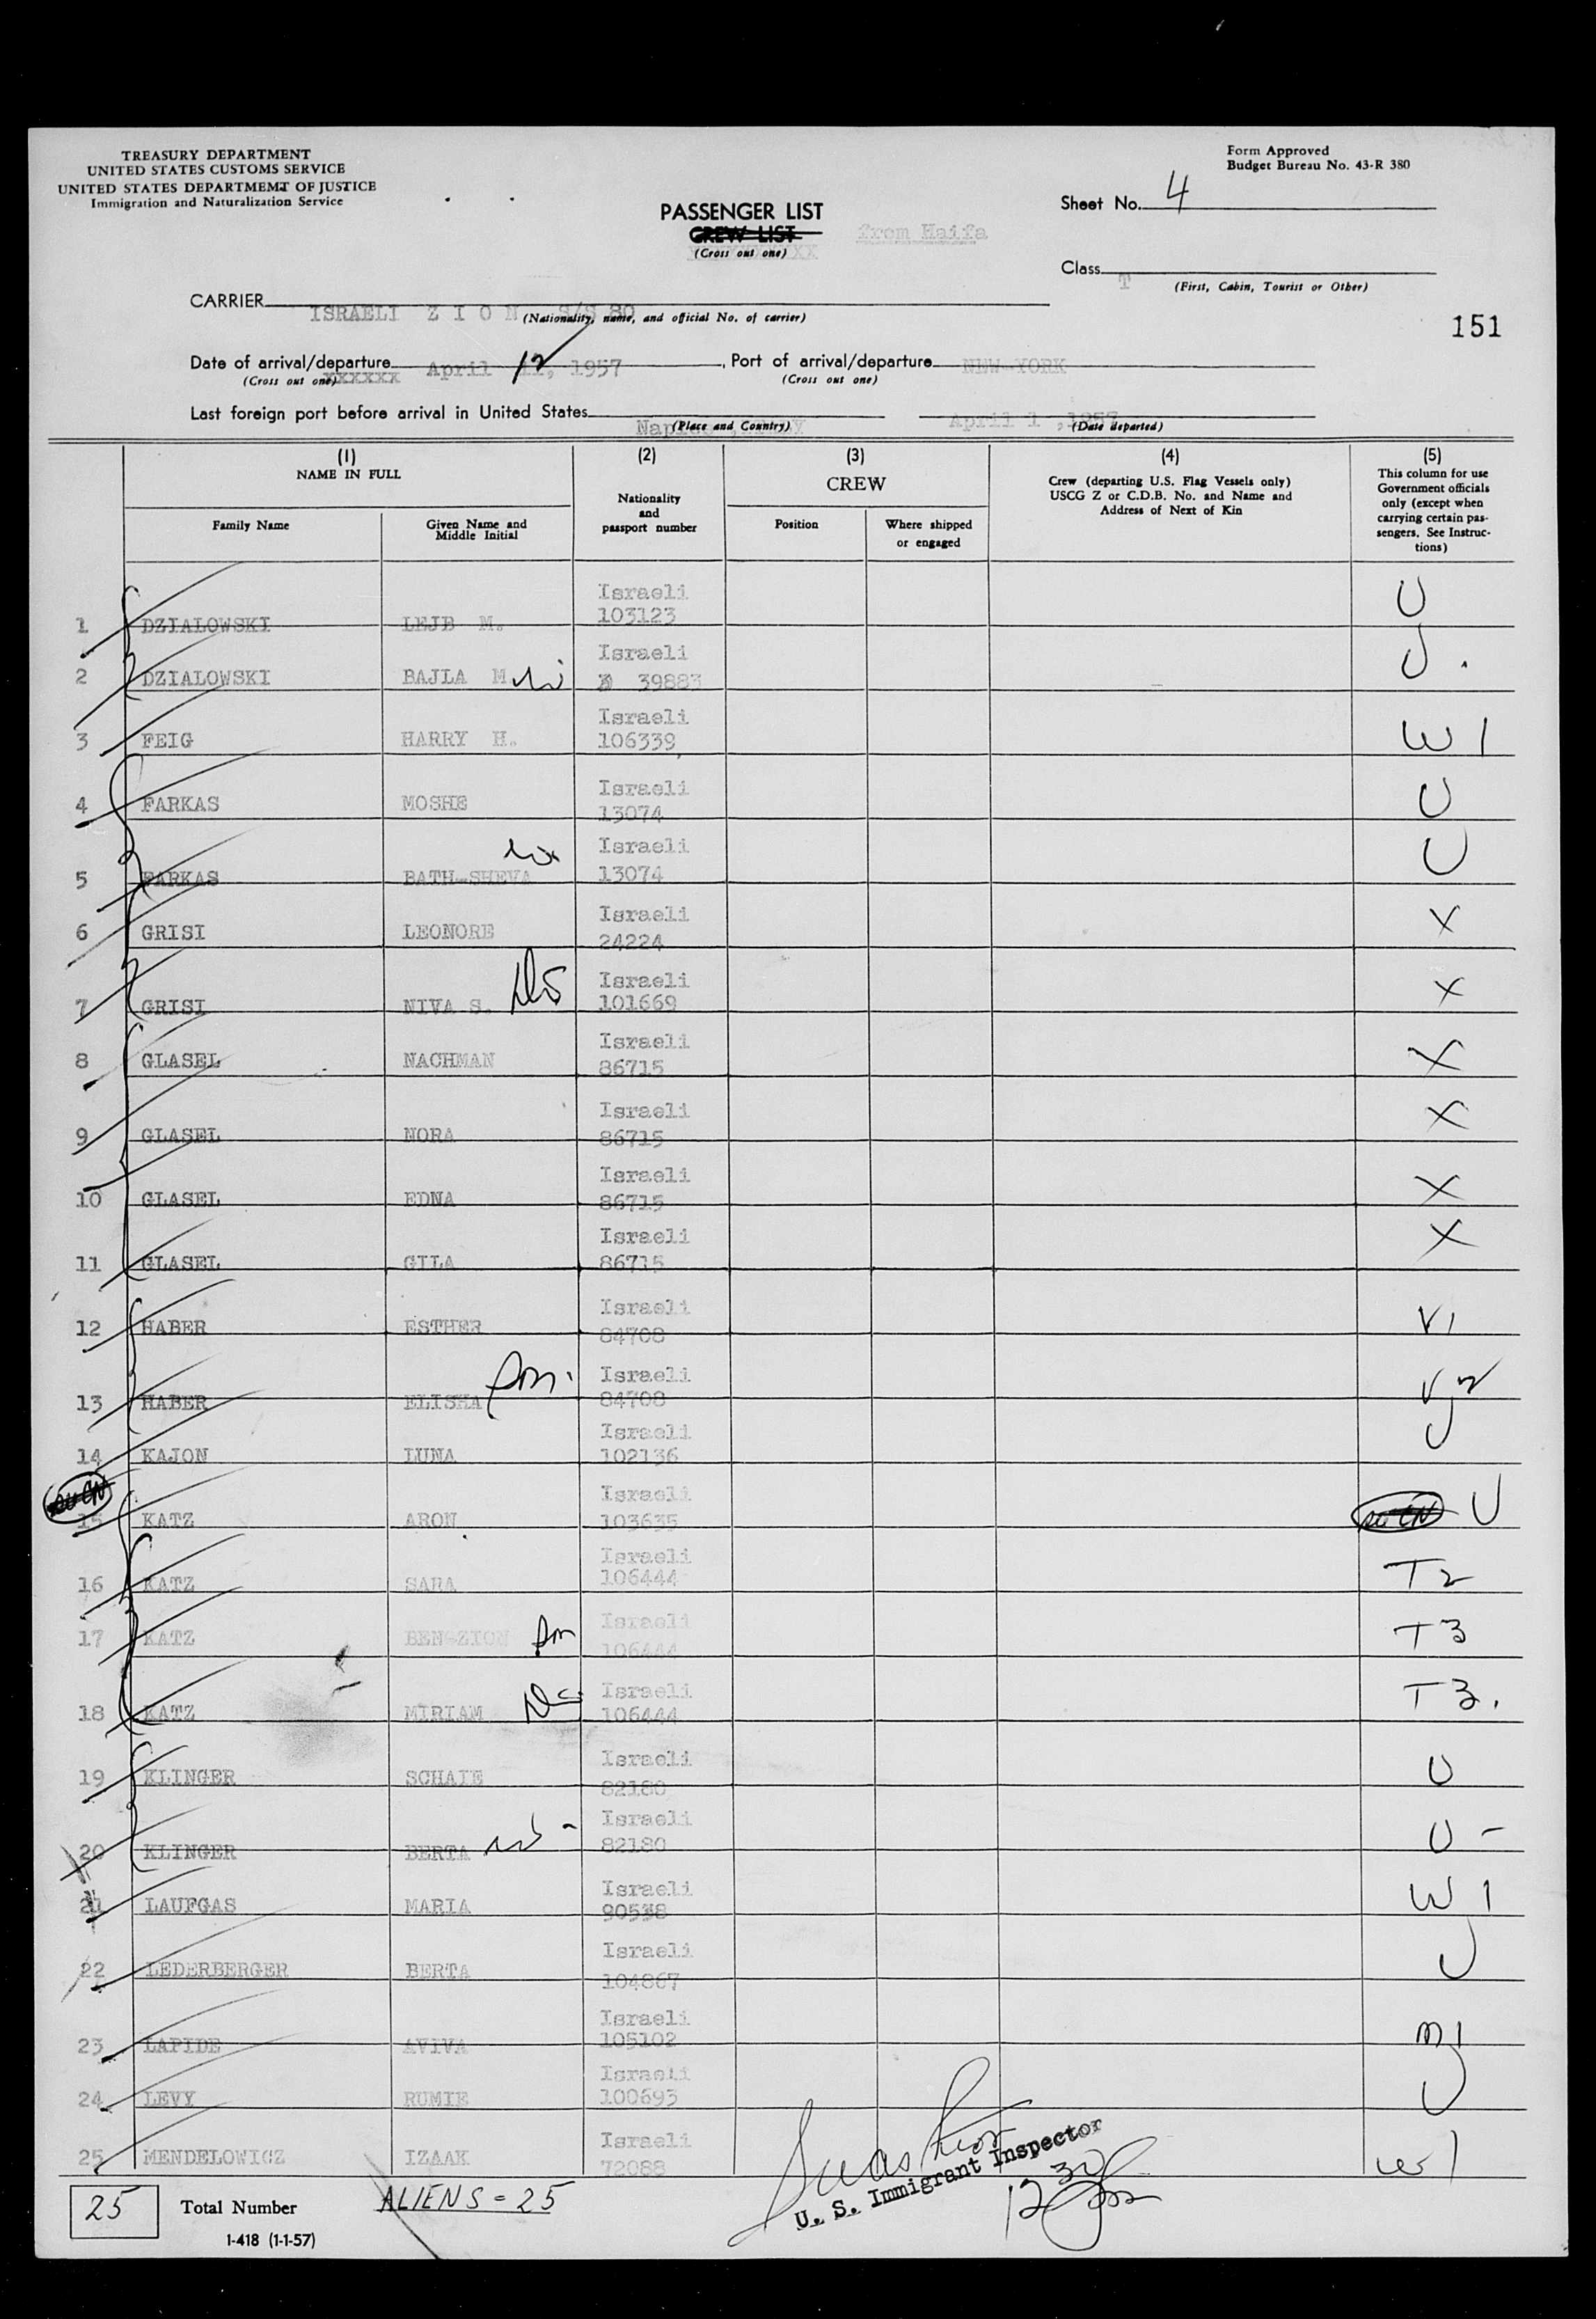 TREASURY DEPARTMENT
UNITED STATES CUSTOMS SERVICE
UNITED STATES DEPARTMEMT OF JUSTICE
Immigration and Naturalization Service
Form Approved
Budget Bureau No. 43-R 380
Sheet No. 4
PASSENGER LIST
CREW LIST
(Cross out one)
from Haifa
Class T
(First, Cabin, Tourist or Other)
CARRIER ISRAELI Z I O N S/S 80
(Nationality, name, and official No. of carrier)
151
Date of arrival/departure April 12, 1957, Port of arrival/departure NEW-YORK
(Cross out one) xxxxxx (Cross out one)
Last foreign port before arrival in United States Naples, April 1, 1957
(Place and Country) (Date departed)
(1) (2) (3) (4) (5)
NAME IN FULL
Family Name
Given Name and Middle Initial
Nationality and passport number
CREW
Position
Where shipped or engaged
Crew (departing U.S. Flag Vessels only)
USCG Z or C.D.B. No. and Name and
Address of Next of Kin
This column for use
Government officials
only (except when
carrying certain pas-
sengers. See Instruc-
tions)
1 DZIALOWSKI LEJB M. Israeli 103123 U
2 DZIALOWSKI BAJLA M. Israeli 39883 U.
3 FEIG HARRY H. Israeli 106339 W 1
4 FARKAS MOSHE Israeli 13074 U
5 FARKAS BATH-SHEVA Israeli 13074 U
6 GRISI LEONORE Israeli 24224 X
7 GRISI NIVA S. Israeli 101669 X
8 GLASEL NACHMAN Israeli 86715 X
9 GLASEL NORA Israeli 86715 X
10 GLASEL EDNA Israeli 86715 X
11 GLASEL GILA Israeli 86715 X
12 HABER ESTHER Israeli 84708 V1
13 HABER ELISHA Israeli 84708 V2
14 KAJON LUNA Israeli 102136 U
15 KATZ ARON Israeli 103635 U
16 KATZ SARA Israeli 106444 T2
17 KATZ BEN-ZION Israeli 106444 T3
18 KATZ MIRIAM Israeli 106444 T3.
19 KLINGER SCHAIE Israeli 82180 U
20 KLINGER BERTA Israeli 82180 U -
21 LAUFGAS MARIA Israeli 90538 W 1
22 LEDERBERGER BERTA Israeli 104867 U
23 LAPIDE AVIVA Israeli 105102
24 LEVY RUMIE Israeli 100693 U
25 MENDELOWICZ IZAAK Israeli 72088 W1
25 Total Number ALIENS = 25
U. S. Immigrant Inspector
I-418 (1-1-57)